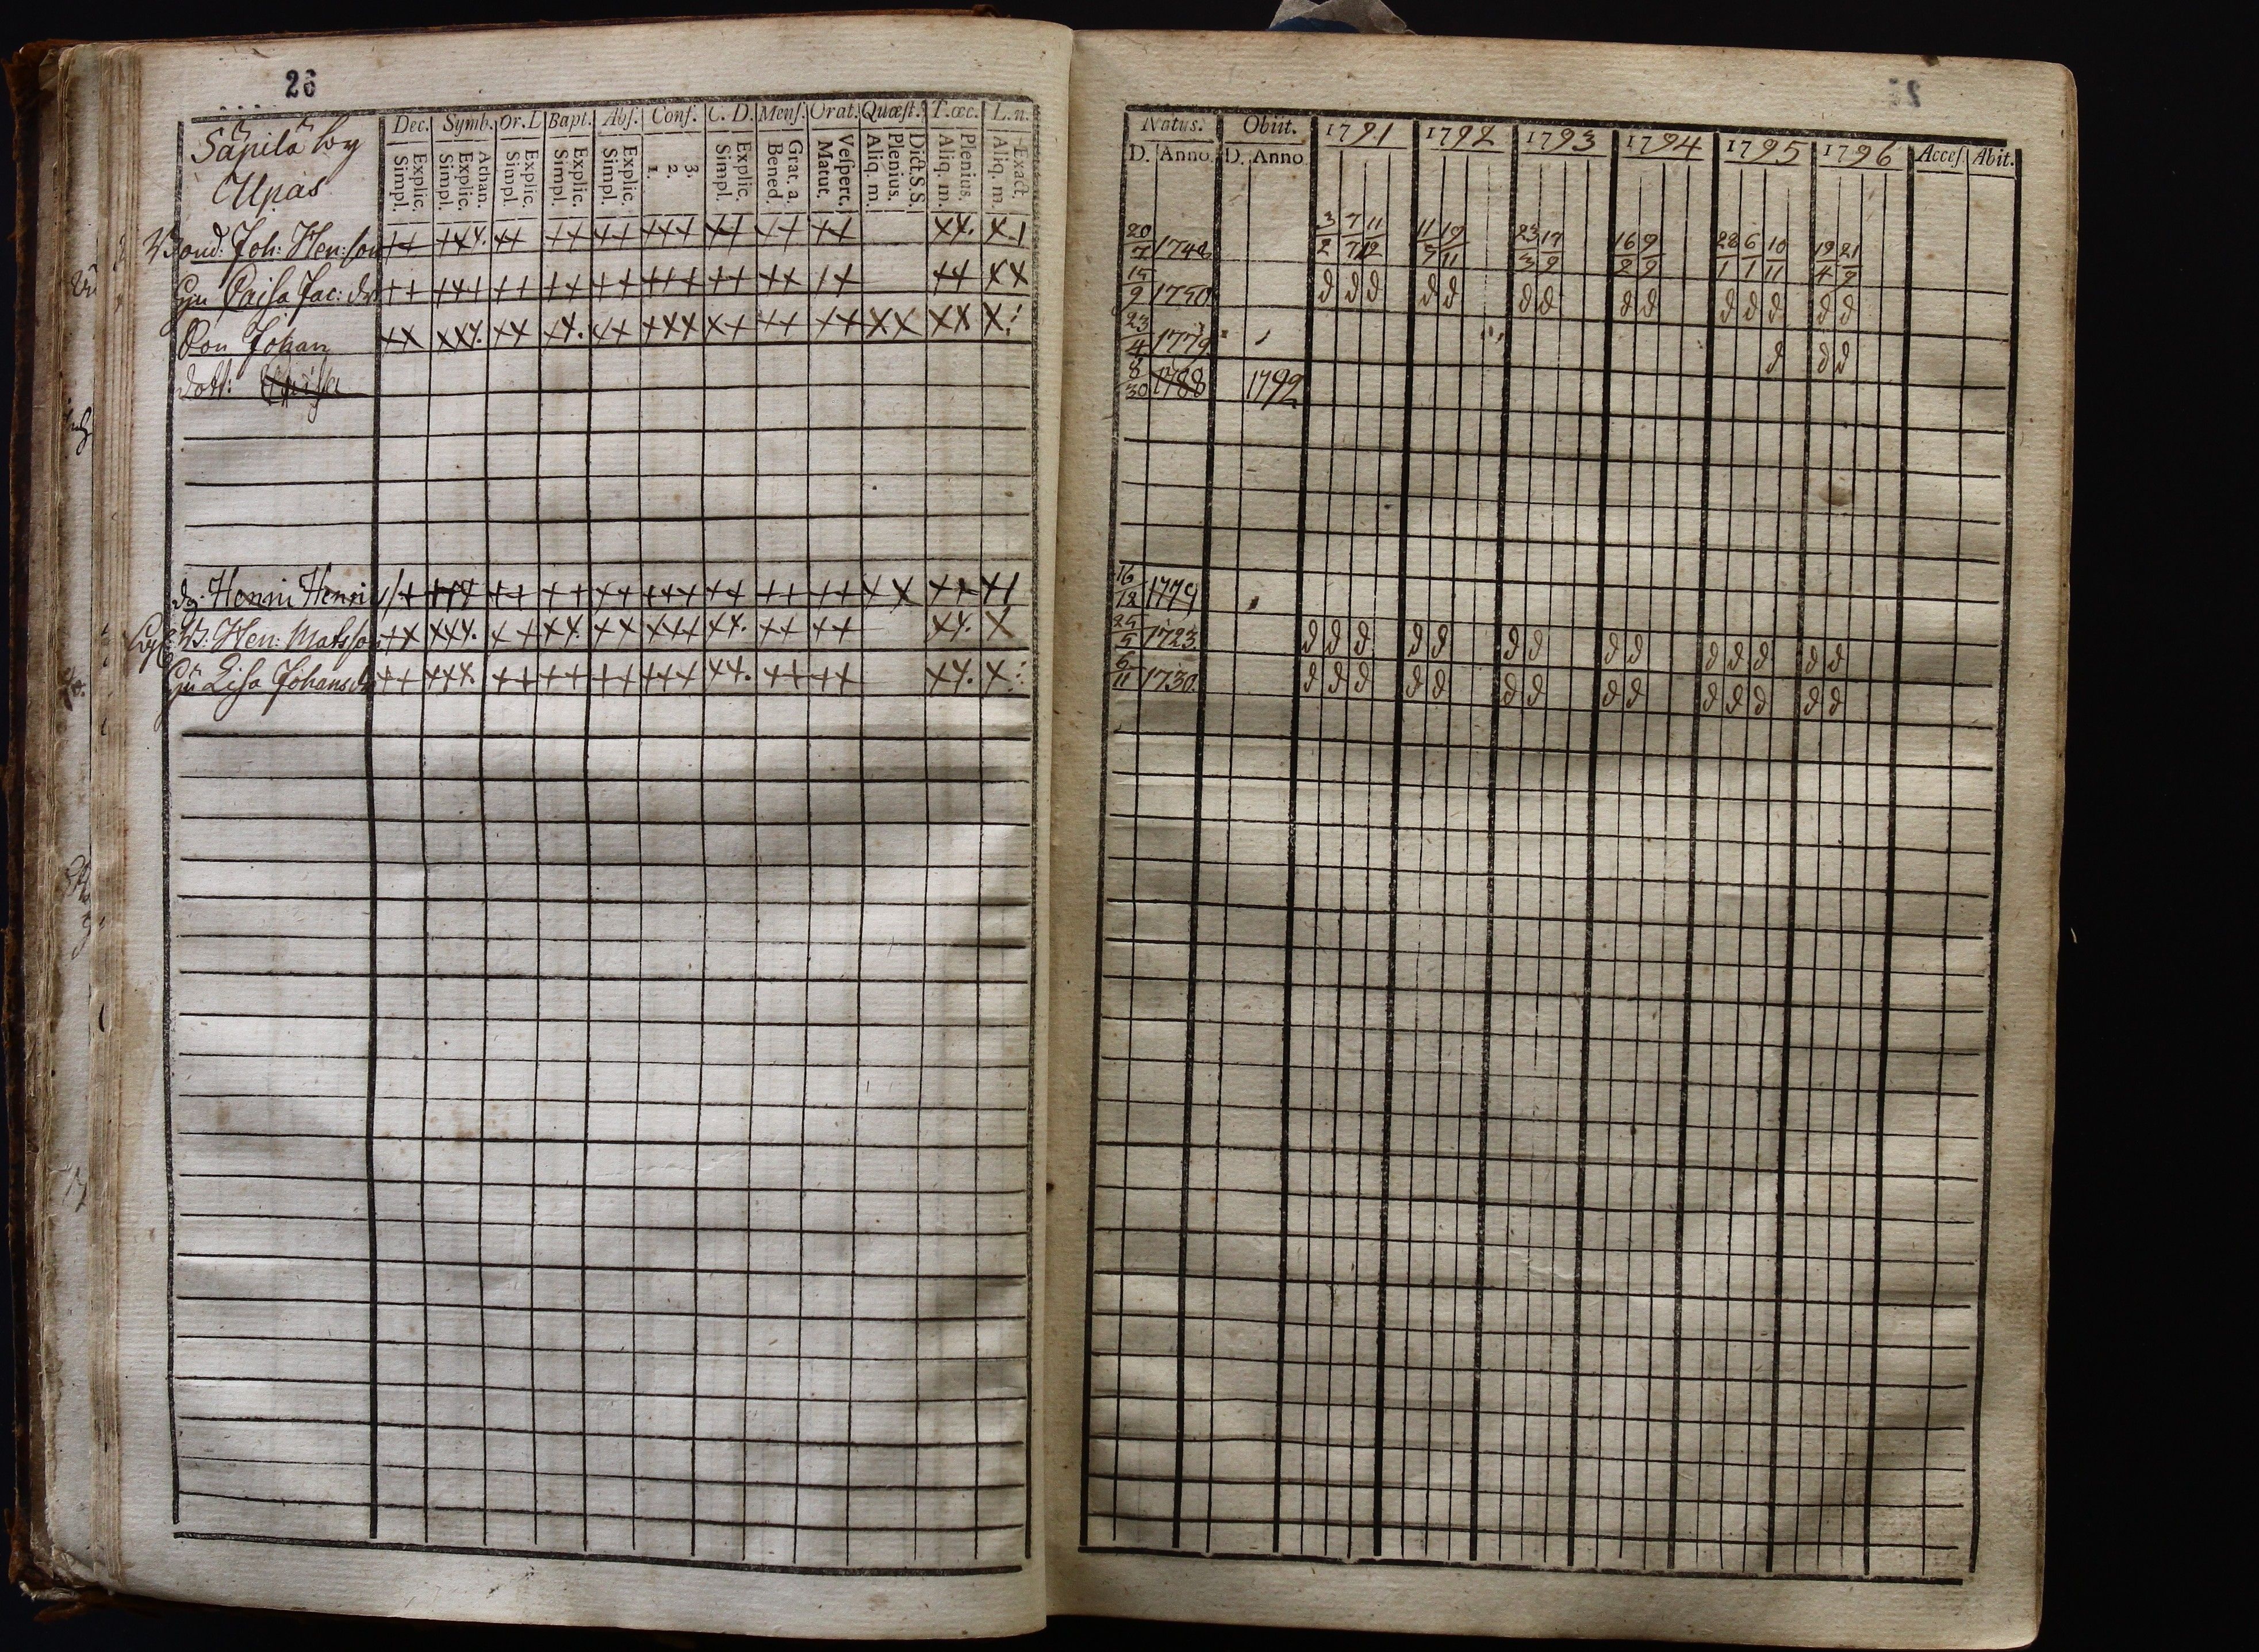 26
Dec. Symb. Or. D. Bapt. Abs. Conf. C. D. Mens. Orat. Quæst. T. œc. L. n.
Explic. Simpl. Athan. Explic. Simpl. Explic. Simpl. Explic. Simpl. Explic. Simpl. 3. 2. 1. Explic. Simpl. Grat. a. Bened. Vespert. Matut. Dict. S. S. Plenius. Aliq. m. Plenius. Aliq. m. Exact. Aliq. m.
Säpilä by
Upas
Bond: Joh: Hen: son
Hu Caisa Jac: dr
Son Johan
dott: Caisa
dg. Henric Henri
W: Hen: Matsson
Hu Lisa Johansdr
Natus. Obiit. 1791 1792 1793 1794 1795 1796 Acces. Abit.
D. Anno D. Anno
20/7 1748 3/2 7/7 11/12 11/3 19/11 23/3 17/9 16/2 9/9 28/1 6/1 10/11 19/4 21/9
15/9 1750 d d d d d d d d d d d d d d
23/4 1779 d d d
8/30 1788 1792
16/12 1779
25/5 1723 d d d d d d d d d d d d d d
6/11 1730 d d d d d d d d d d d d d d